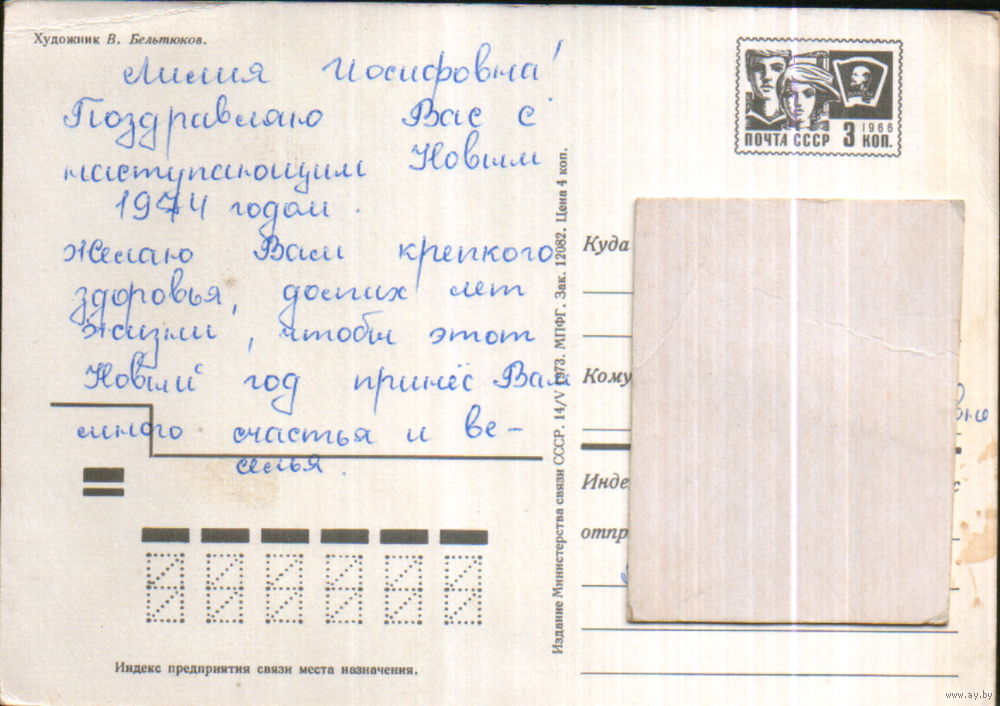 Художник В. Бельтюков.
Лилия Иосифовна!
Поздравляю Вас с
наступающим Новым
1974 годом.
Желаю Вам крепкого
здоровья, долгих лет
жизни, чтобы этот
Новый год принёс Вам
много счастья и ве-
селья.
Индекс предприятия связи места назначения.
Издание Министерства связи СССР. 14/V 1973. МПФГ. Зак. 12082. Цена 4 коп.
1966
ПОЧТА СССР 3 КОП.
Куда
Кому
Инде
отпр
вне
с
www.ay.by